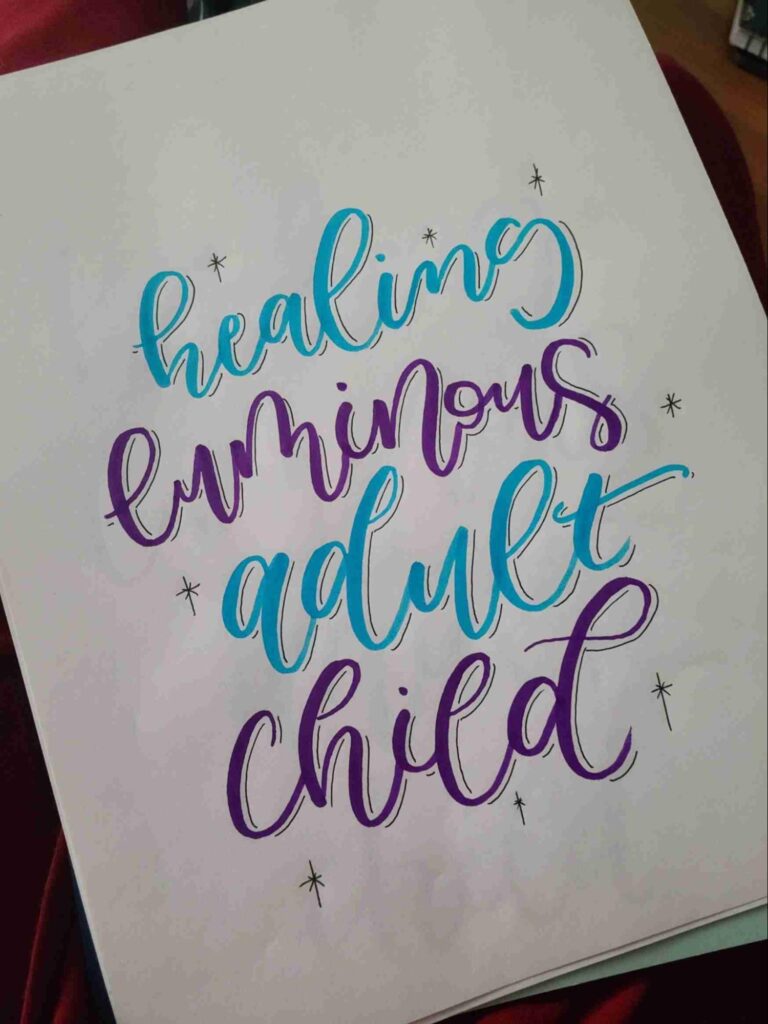 healing
luminous
adult
child